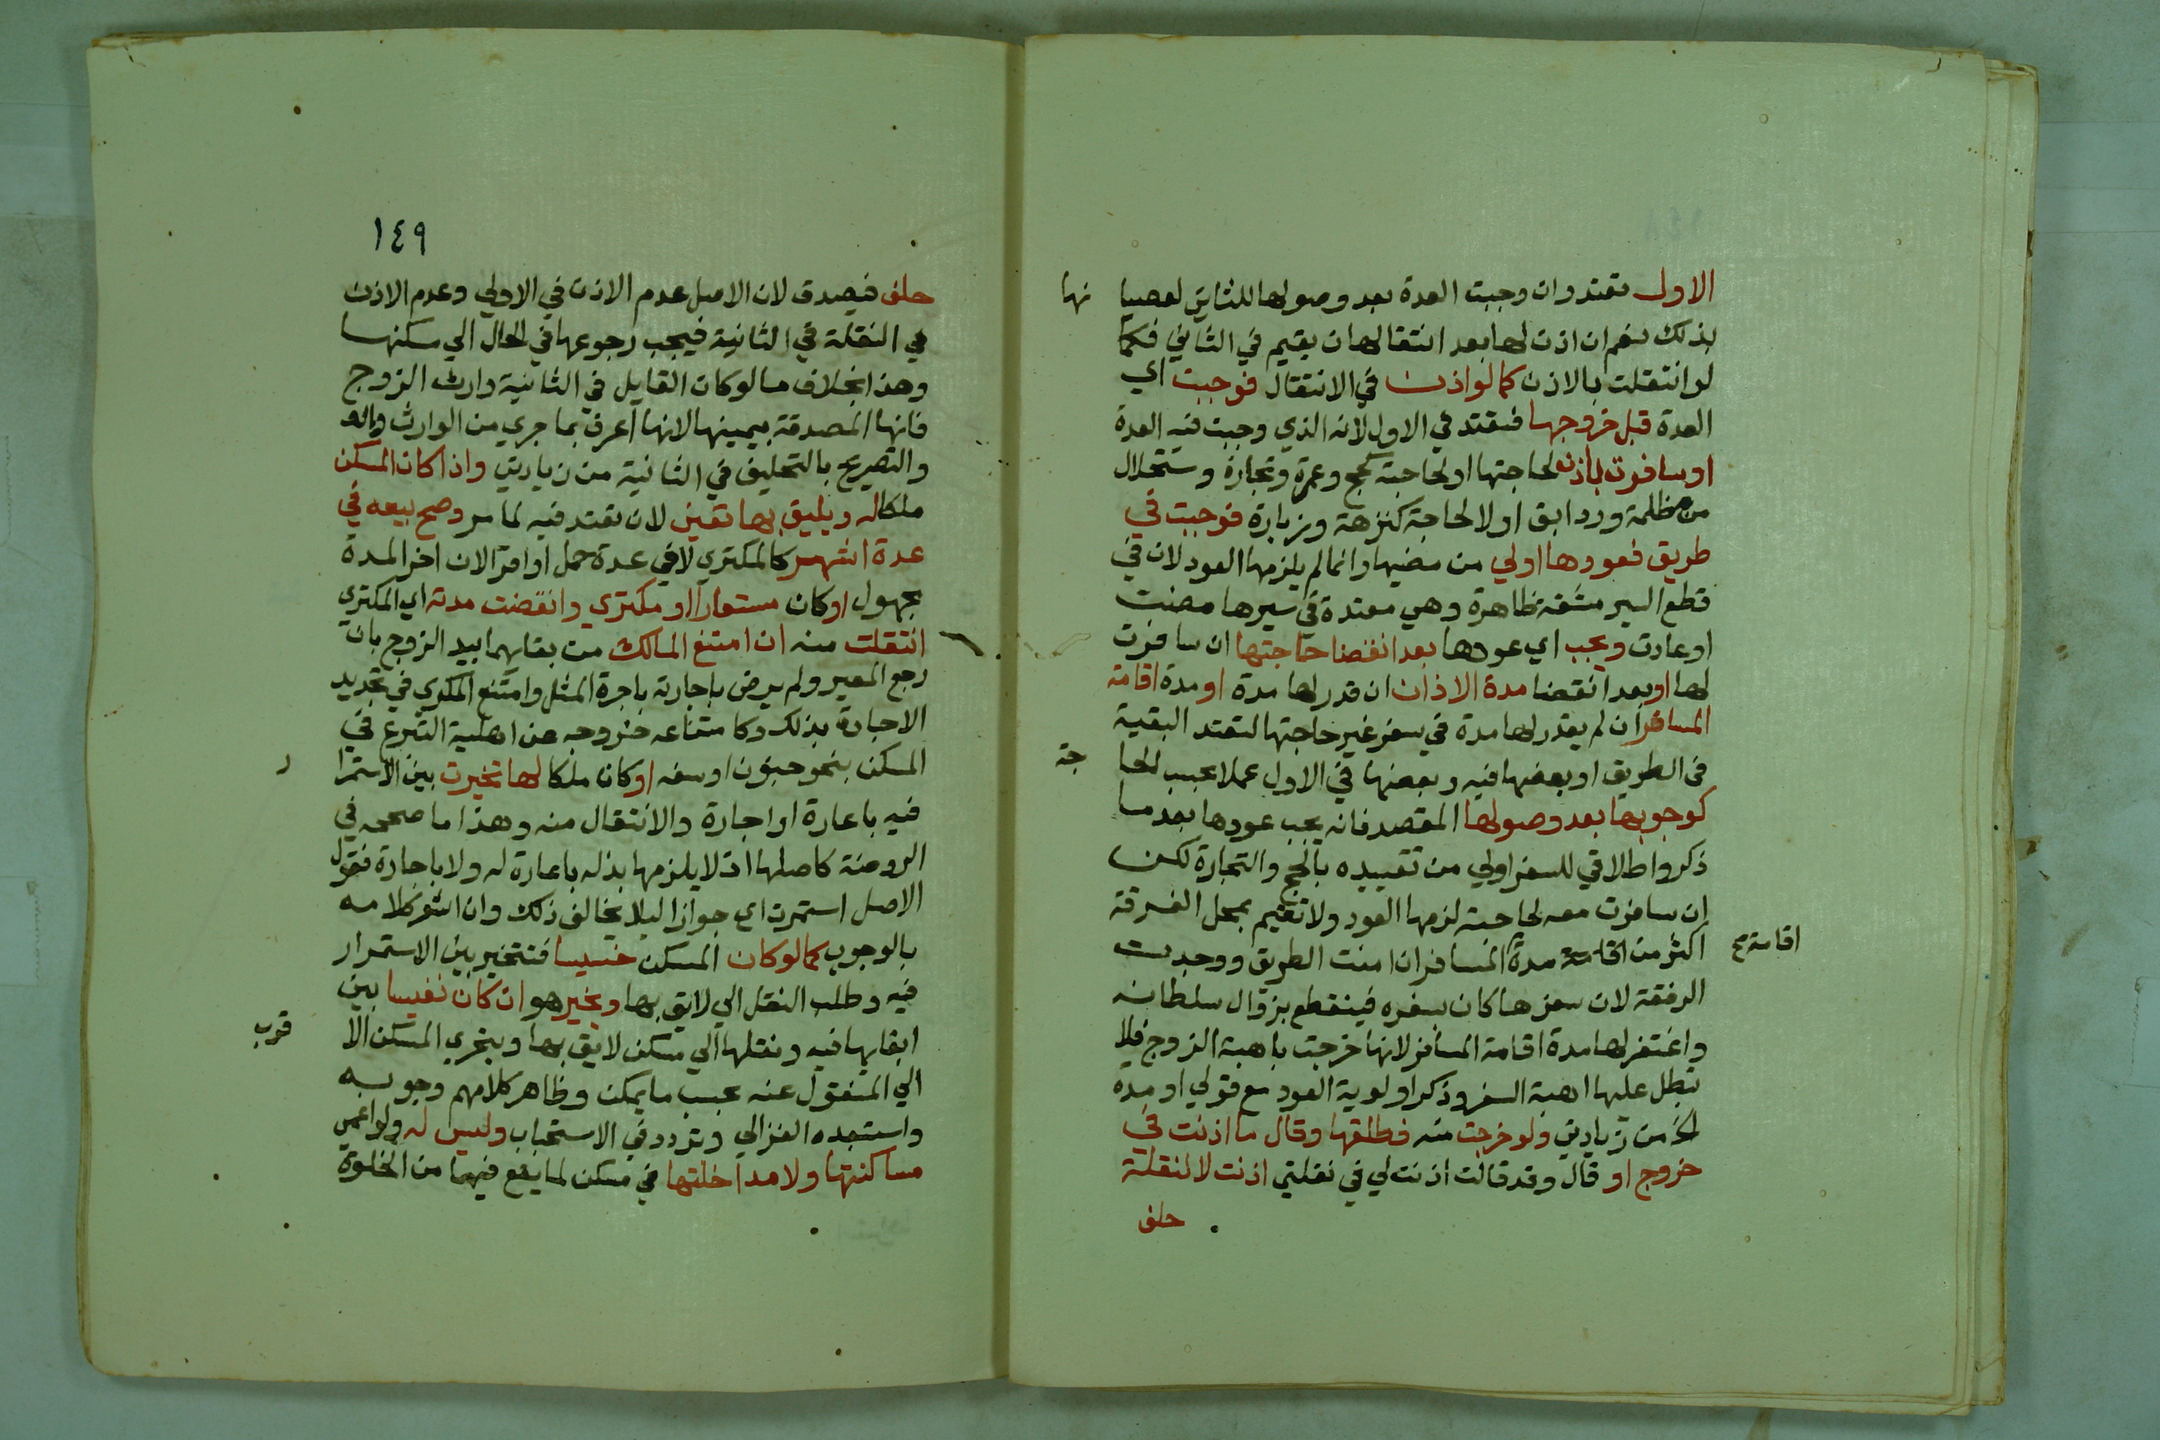 الاول تعتد وان وجبت العدة بعد وصولها للثاني لعصيا نها
بذلك نعم ان اذن لها بعد انتقالها ان يقيم في الثاني فكما
لو انتقلت بالاذن كما لو اذن في الانتقال فوجبت اي
العدة قبل خروجها فتعتد في الاول لانه الذي وجبت فيه العدة
او سافرت باذن لحاجتها او لحاجته كحج وعمرة وتجارة وستحلال
من مظلمة ورد ابق او لا لحاجة كنزهة وزيارة فوجبت في
طريق فعودها اولي من مضيها وانما لم يلزمها العود لان في
قطع السير مشقة ظاهرة وهي معتدة في سيرها مضت
او عادت ويجب اي عودها بعد انقضا حاجتها ان سافرت
لها او بعد انقضا مدة الاذن ان قدر لها مدة او مدة اقامة
المسافر ان لم يقدر لها مدة في سفر غير حاجتها لتعتد البقية
في الطريق او بعضها فيه وبعضها في الاول عملا بحسب الحا جة
كوجوبها بعد وصولها المقصد فانه يجب عودها بعد ما
ذكر واطلاقي للسفر اولي من تقييده بالحج والتجارة لكن
ان سافرت معه لحاجته لزمها العود ولا تقيم بمحل الفرقة
اكثر من اقامة مدة المسافر ان امنت الطريق ووجدت
اقامة
الرفقة لان سفرها كان سفره فينقطع بزوال سلطانه
واغتفر لها مدة اقامة المسافر لانها خرجت باهبة الزوج فلا
تبطل عليها اهبة السفر وذكر اولوية العود مع قولي او مدة
الخ من زيادتي ولو خرجت منه فطلقها وقال ما اذنت في
خروج او قال وقد قالت اذنت لي في نقلتي اذنت لا لنقلة
حلف
١٤٩
حلف فيصدق لان الاصل عدم الاذن في الاولي وعدم الاذن
في النقلة في الثانية فيجب رجوعها في الحال الي مسكنها
وهذا بخلاف ما لو كان القايل في الثانية وارث الزوج
فانها المصدقة بيمينها لانها اعرف بما جري من الوارث
والتصريح بالتحليف في الثانية من زيادتي واذا كان المسكن
ملكا له ويليق بها تعين لان تعتد فيه لما مر وصح بيعه في
عدة اشهر كالمكتري لا في عدة حمل او اقرا لان اخر المدة
مجهول او كان مستعارا او مكتري وانقضت مدته اي المكتري
انتقلت منه ان امتنع المالك من بقايهما بيد الزوج بان
رجع المعير ولم يرض باجارته باجرة المثل وامتنع المكري في تجديد
الاجارة بذلك وكامتناعه خروجه عن اهلية التبرع في
المسكن بنحو جنون او سفه او كان ملكا لها تخيرت بين الاستمرا ر
فيه باعارة او اجارة والانتقال منه وهذا ما صححه في
الروضة كاصلها اذ لا يلزمها بذله باعارة له ولا باجارة فقول
الاصل استمرت اي جوازا ليلا يخالف ذلك وان اشعر كلامه
بالوجوب كما لو كان المسكن خسيسا فتتخير بين الاستمرار
فيه وطلب النقل الي لايق بها ويخير هو ان كان نفيسا بين
ابقايها فيه ونقلها الي مسكن لايق بها ويتحري المسكن الا قرب
الي المنقول عنه بحسب ما يمكن وظاهر كلامهم وجوبه
واستبعده الغزالي وتردد في الاستحباب وليس له ولو اعمي
مساكنتها ولا مداخلتها في مسكن لما يقع فيهما من الخلوة